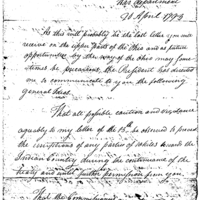 War Department
21 April 1793
As this will probably be the last letter you will
receive on the upper parts of the Ohio and as future
opportunities by the way of the Ohio may some
times be precarious, the President has directed
me to communicate to you the following
general ideas.
That all possible caution and vigilance
agreeably to my letter of the 13th be used to prevent
the irruptions of any parties of whites towards the
Indian Country during the continuance of the
treaty and until further permission from you.
That the